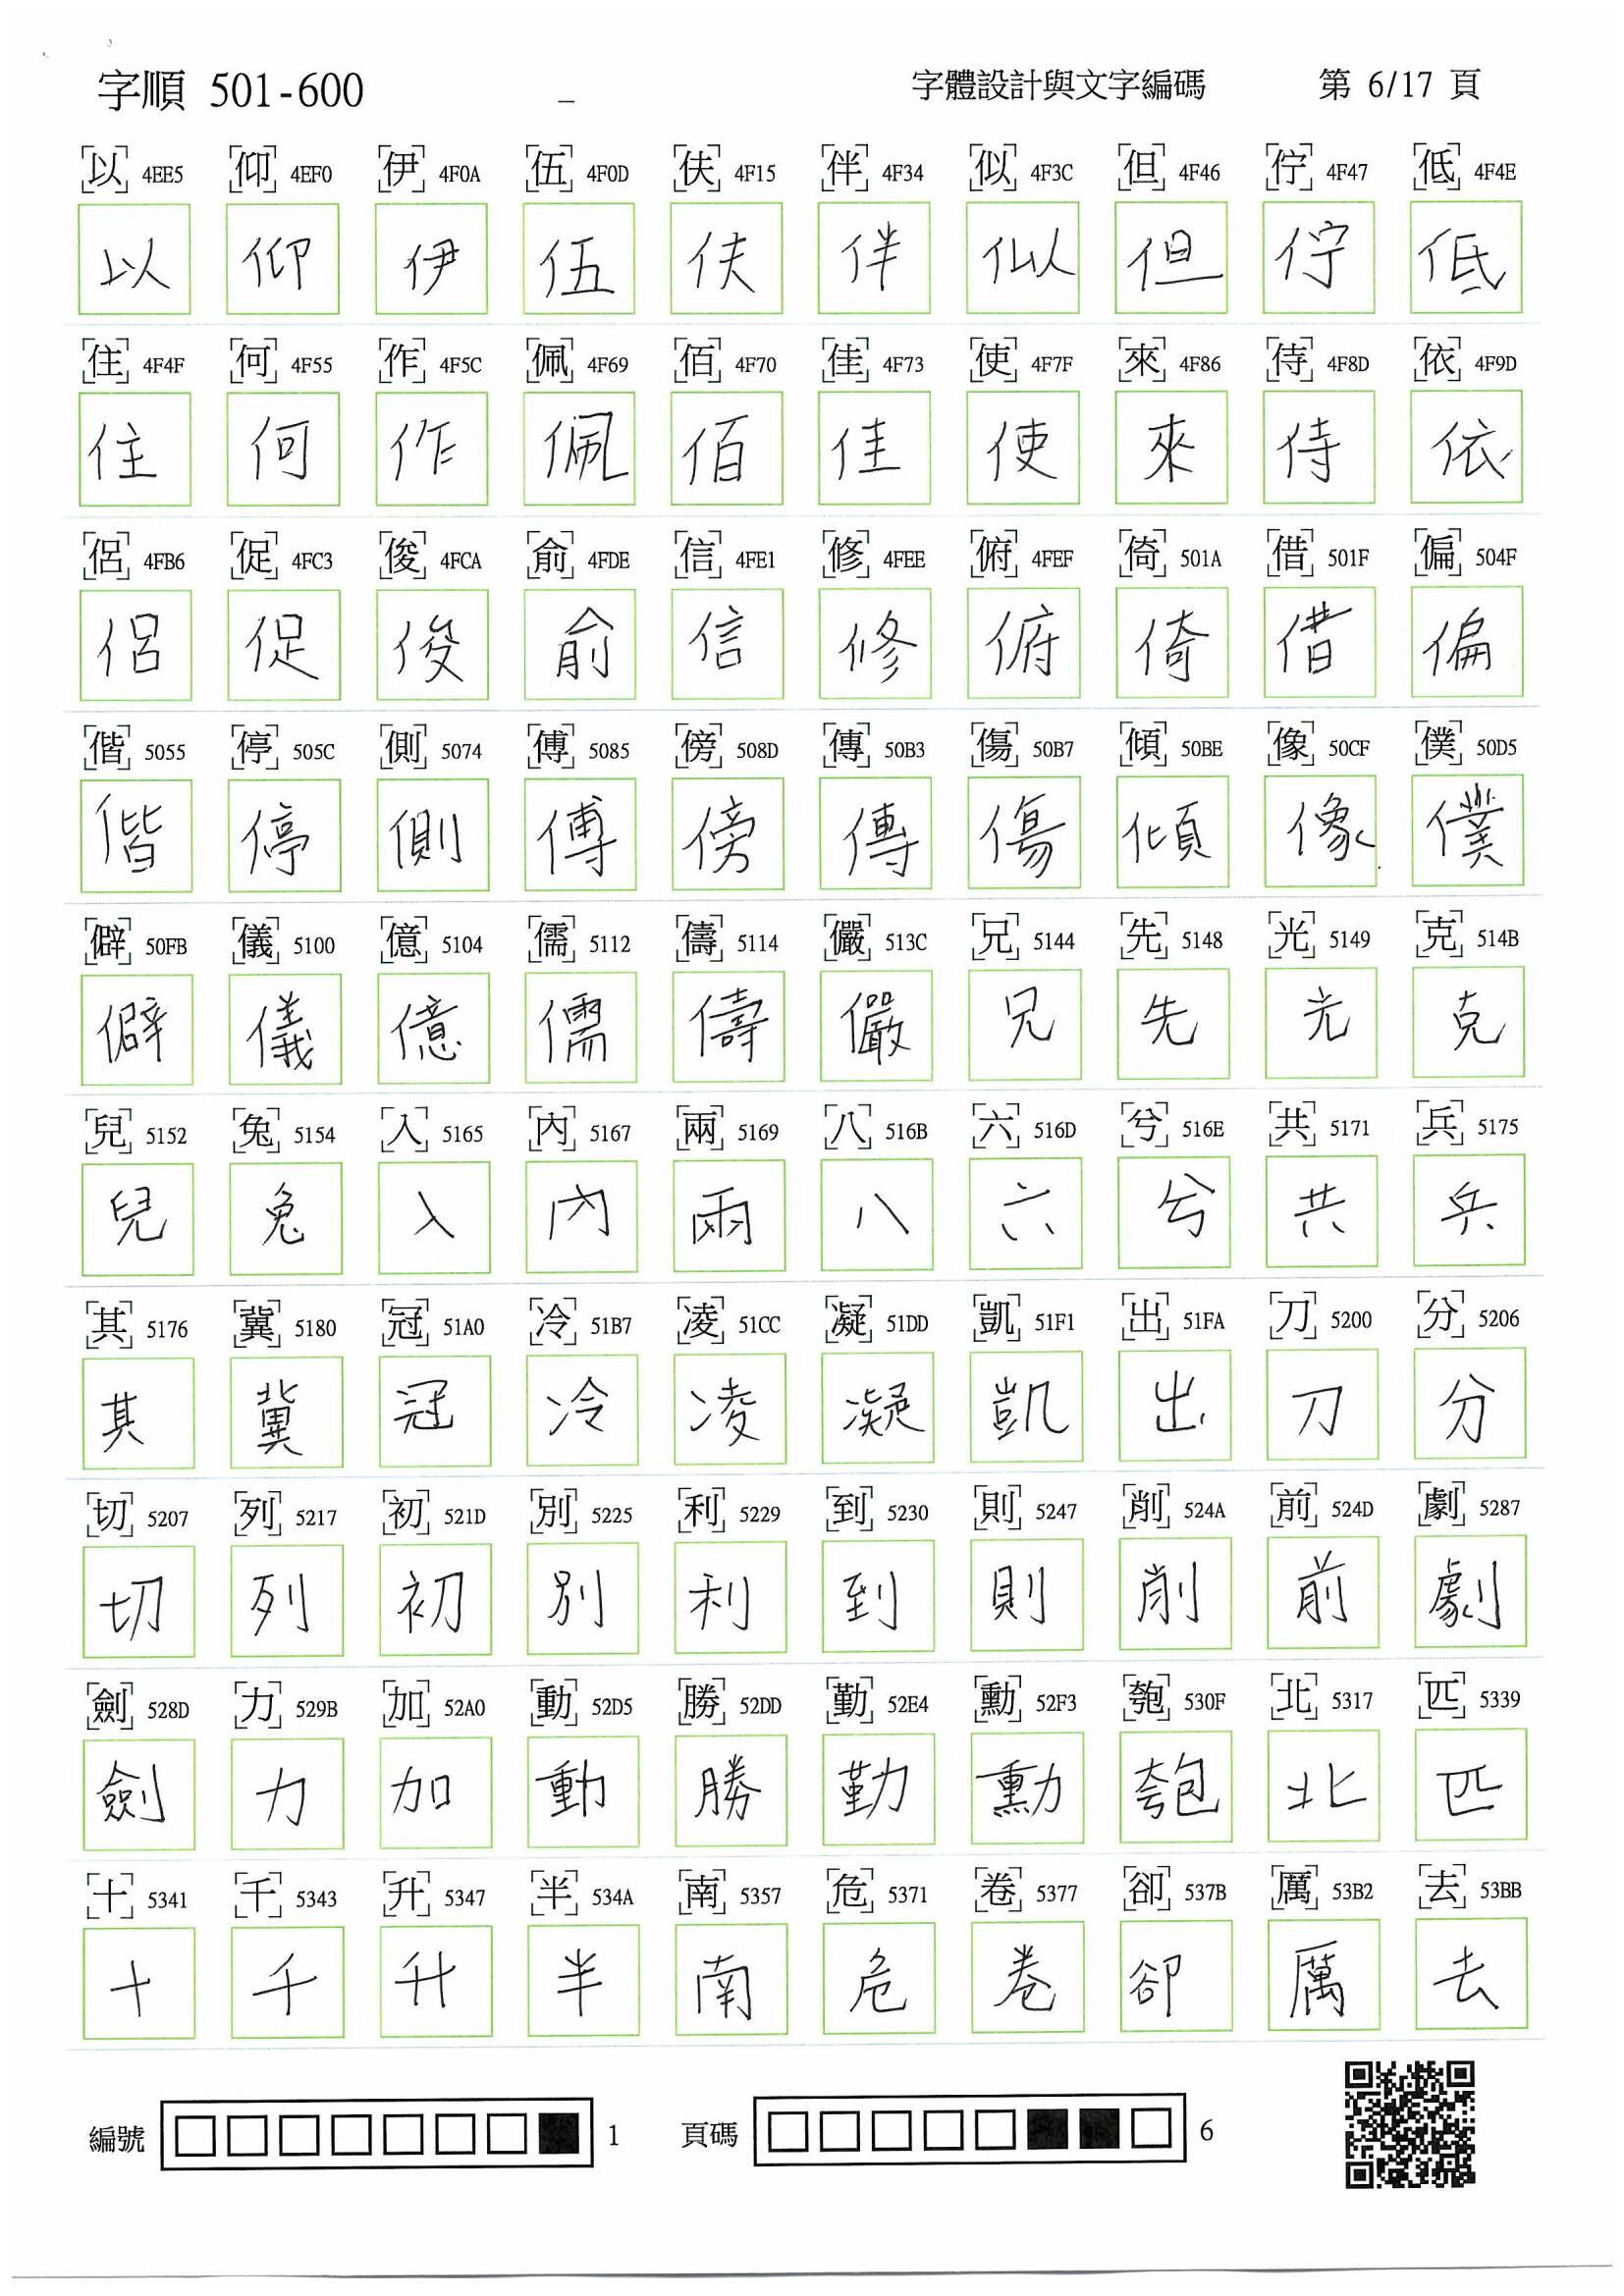 字順 501-600 字體設計與文字編碼 第 6/17 頁
以 4EE5 仰 4EF0 伊 4F0A 伍 4F0D 伕 4F15 伴 4F34 似 4F3C 但 4F46 佇 4F47 低 4F4E
以 仰 伊 伍 伕 伴 似 但 佇 低
住 4F4F 何 4F55 作 4F5C 佩 4F69 佰 4F70 佳 4F73 使 4F7F 來 4F86 侍 4F8D 依 4F9D
住 何 作 佩 佰 佳 使 來 侍 依
侶 4FB6 促 4FC3 俊 4FCA 俞 4FDE 信 4FE1 修 4FEE 俯 4FEF 倚 501A 借 501F 偏 504F
侶 促 俊 俞 信 修 俯 倚 借 偏
偕 5055 停 505C 側 5074 傅 5085 傍 508D 傳 50B3 傷 50B7 傾 50BE 像 50CF 僕 50D5
偕 停 側 傅 傍 傳 傷 傾 像 僕
僻 50FB 儀 5100 億 5104 儒 5112 儔 5114 儼 513C 兄 5144 先 5148 光 5149 克 514B
僻 儀 億 儒 儔 儼 兄 先 光 克
兒 5152 兔 5154 入 5165 內 5167 兩 5169 八 516B 六 516D 兮 516E 共 5171 兵 5175
兒 兔 入 內 兩 八 六 兮 共 兵
其 5176 冀 5180 冠 51A0 冷 51B7 凌 51CC 凝 51DD 凱 51F1 出 51FA 刀 5200 分 5206
其 冀 冠 冷 凌 凝 凱 出 刀 分
切 5207 列 5217 初 521D 別 5225 利 5229 到 5230 則 5247 削 524A 前 524D 劇 5287
切 列 初 別 利 到 則 削 前 劇
劍 528D 力 529B 加 52A0 動 52D5 勝 52DD 勤 52E4 勳 52F3 匏 530F 北 5317 匹 5339
劍 力 加 動 勝 勤 勳 匏 北 匹
十 5341 千 5343 升 5347 半 534A 南 5357 危 5371 卷 5377 卻 537B 厲 53B2 去 53BB
十 千 升 半 南 危 卷 卻 厲 去
編號 1 頁碼 6